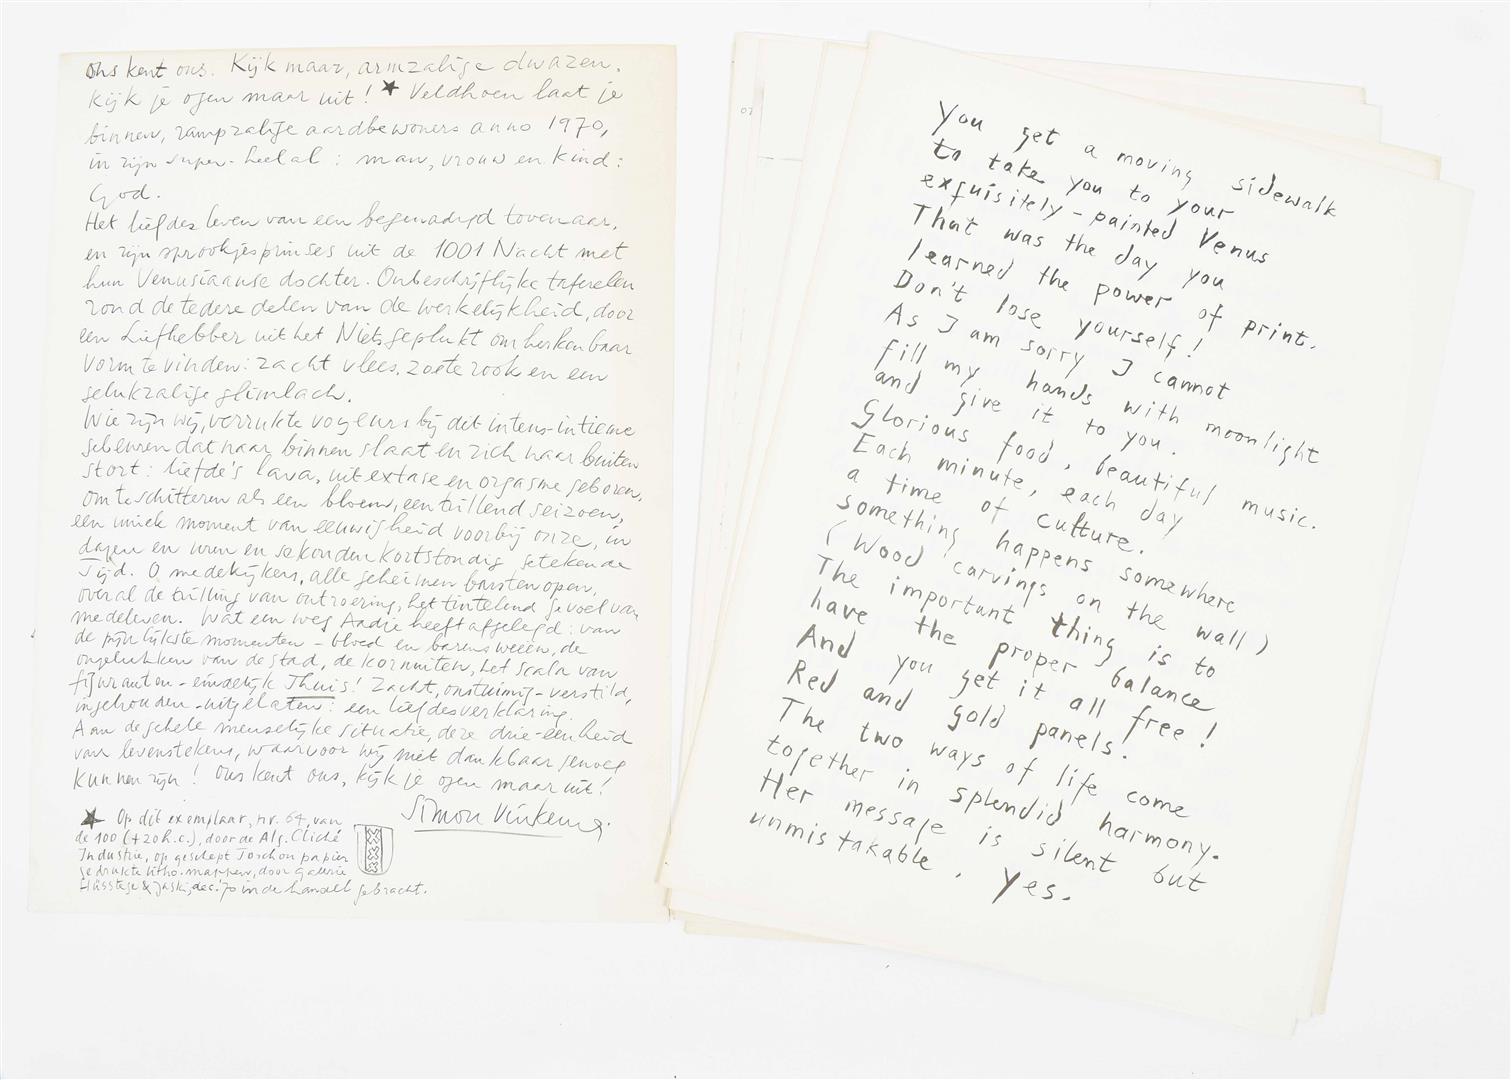 ons kent ons. Kijk maar, armzalige dwazen.
Kijk je ogen maar uit! ★ Veldhoen laat je
binnen, rampzalige aardbewoners anno 1970,
in zijn super-heelal: man, vrouw en kind:
God.
Het liefdesleven van een begenadigd tovenaar,
en zijn sprookjesprinses uit de 1001 Nacht met
hun Venusiaanse dochter. Onbeschrijflijke taferelen
rond de tedere delen van de werkelijkheid, door
een Liefhebber uit het Niets geplukt om herkenbaar
vorm te vinden: zacht vlees, zoete rook en een
gelukzalige glimlach.
Wie zijn wij, verrukte voyeurs bij dit intens-intieme
gebeuren dat naar binnen slaat en zich naar buiten
stort: liefde's lava, uit extase en orgasme geboren,
om te schitteren als een bloem, een trillend seizoen,
een uniek moment van eeuwigheid voorbij onze, in
dagen en uren en sekonden kortstondig getekende
Tijd. O medekijkers, alle geheimen barsten open,
overal de trilling van ontroering, het tintelend gevoel van
medeleven. Wat een weg Aadje heeft afgelegd: van
de pijnlijkste momenten - bloed en barensweeën, de
ongelukken van de stad, de kornuiten, het scala van
figuranten - eindelijk Thuis! Zacht, onstuimig-verstild,
ingehouden-uitgelaten: een liefdesverklaring.
Aan de gehele menselijke situatie, deze drie-eenheid
van levenstekens, waarvoor wij niet dankbaar genoeg
kunnen zijn! Ons kent ons, kijk je ogen maar uit!
Simon Vinkenoog
★ Op dit exemplaar, nr. 64, van
de 100 (+20 h.c.), door de Alg. Cliché
Industrie, op geschept Torchon papier
gedrukte litho-mappen, door galerie
& Jaski, dec. '70 in de handel gebracht.
You get a moving sidewalk
to take you to your
exquisitely-painted Venus
That was the day you
learned the power of print.
Don't lose yourself!
As I am sorry I cannot
fill my hands with moonlight
and give it to you.
Glorious food, beautiful music.
Each minute, each day
a time of culture.
something happens somewhere
(Wood carvings on the wall)
The important thing is to
have the proper balance
And you get it all free!
Red and gold panels!
The two ways of life come
together in splendid harmony.
Her message is silent but
unmistakable. Yes.